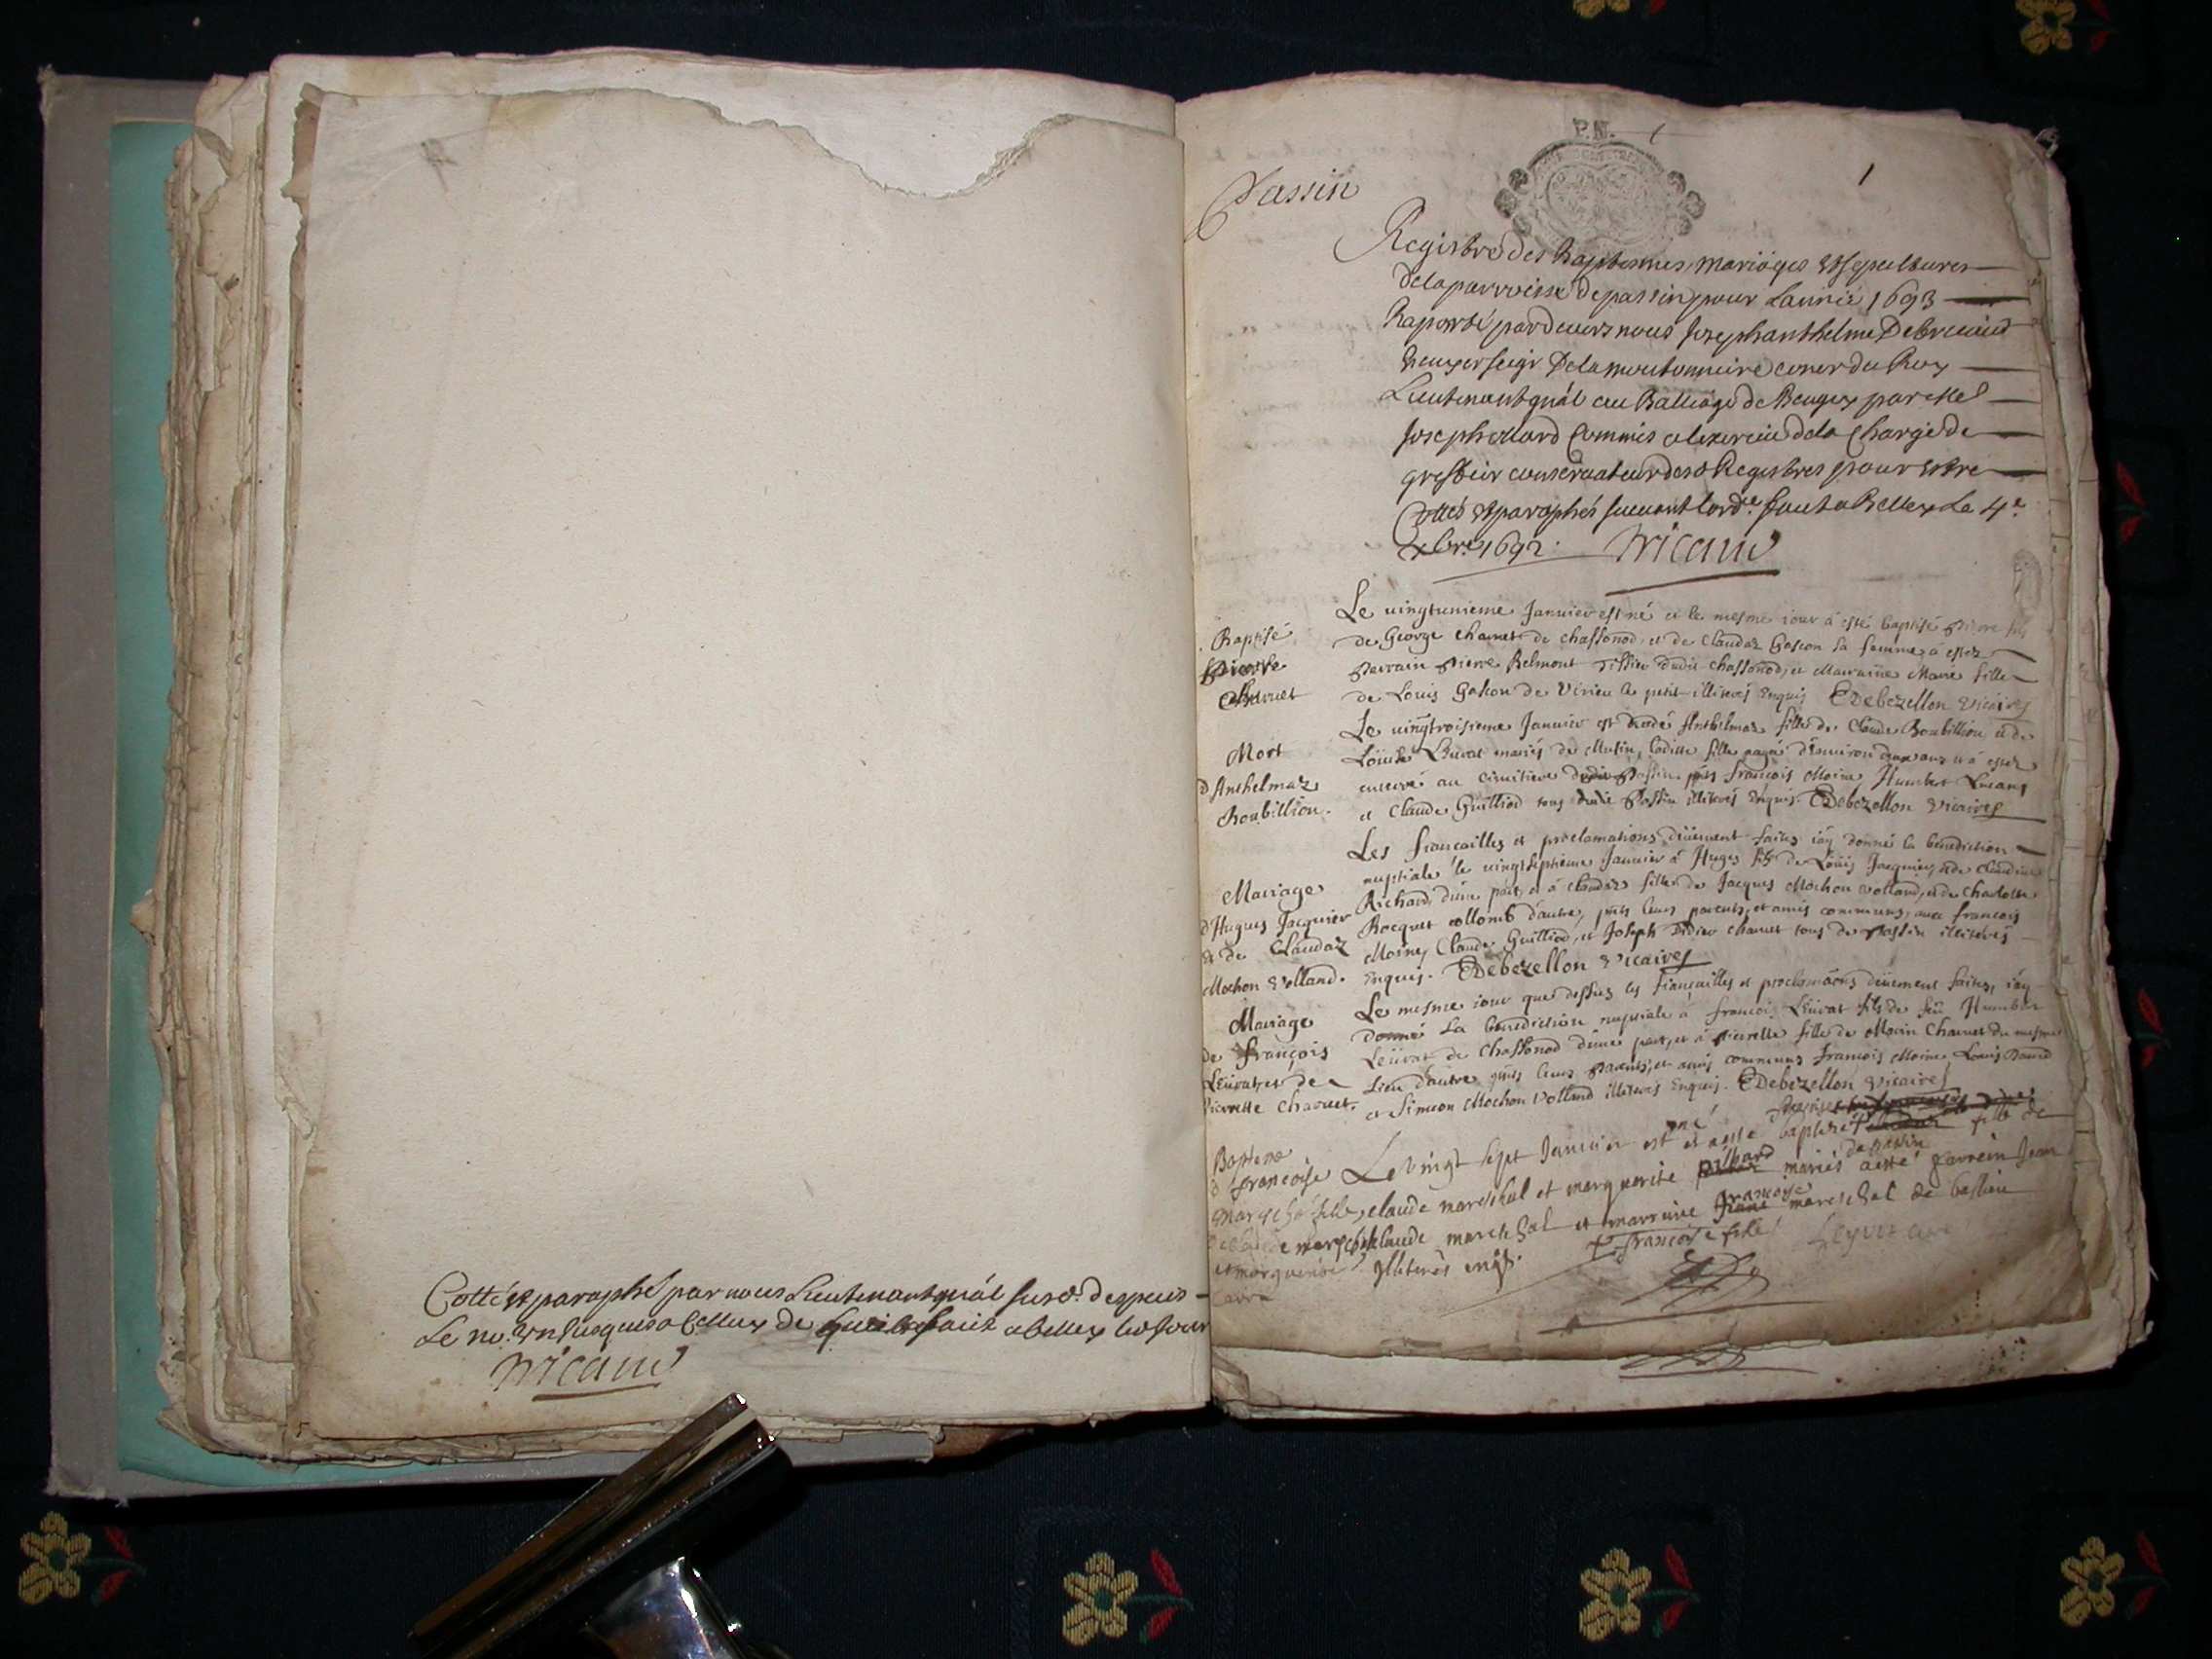 Cotté et paraphé par nous Lieutenant gnál susd.
Le
Tricaud
P.N.
1
Passin
Registre des Baptesmes mariages et sepultures
de la parroisse de passin pour Lannée 1693
Raporté pardevers nous Joseph anthelme De
seigr De la moutonniere du Roy
Lieutenant gnál au Balliage de Beugey par
Joseph commis a lexercice de la Charge de
greffier conservateur des Registres pour estre
Cottés et paraphés suivant lordce. fait a Belley Le 4e
xbre 1692. Tricaud
Baptisé
Pierre
Charuet
Le vingtunieme Januier est né et le mesme iour á esté baptisé Pierre fils
de George Charuet de chassonod, et de Claudaz Gascon sa femme, a esté
Parrain Pierre Belmont Tissieu dudit chassonod, et Marraine Marie fille
de Louis Gascon de Virieu le petit illiterés Enquis Debezellon vicaire
Mort
d'Anthelmaz
Roubillion.
Le vingtroisieme Januier est decedé Anthelmaz fille de Claude Roubillion, et de
Louise Leurat mariés de Mutin, laditte fille aagée d'Environ deux ans et á esté
enterré au cimitiere dudit Passin pnts francois Moine Humbert
et Claude Guilliod tous dudit Passin illiterés Enquis. Debezellon vicaire
Mariage
d'Hugues Jacquier
et de Claudaz
Mochon Volland.
Les fiancailles et proclamations deüement faites iay donné la benediction
nuptiale le vingtseptieme Januier á Hugues fils de Loüis Jacquier, et de Claudine
Richard d'une part, et á claudaz fille de Jacques Mochon volland, et de Charlotte
Rocquet collomb d'autre, pnts leurs parents, et amis communs, auec francois
Moine, Claude Guilliod, et Joseph Didier charuet tous de Passin illiterés
Enquis. Debezellon vicaire
Mariage
de françois
Leüurat et de
Pierrette Charuet.
Le mesme iour que dessus les fiançailles et proclamaons deüement faites, iay
donné la benediction nuptiale á francois Leüurat fils de feü Humbert
Leüurat de Chassonod d'une part, et á Pierrette fille de Morin Charuet du mesme
Lieu d'autre pnts leurs Parents, et amis communs francois Moine Louis
et Simeon Mochon Volland illiterés Enquis. Debezellon vicaire
Bapteme
d françoise
mareschal fille
de claude mareschal
et marguerite
Le vingt sept Januier est né et a esté baptizé fille de
claude mareschal et marguerite mariés de passin a esté parrein Jean
claude mareschal et marreine francoise mareschal de
Illiterés enqs.
francoise fille